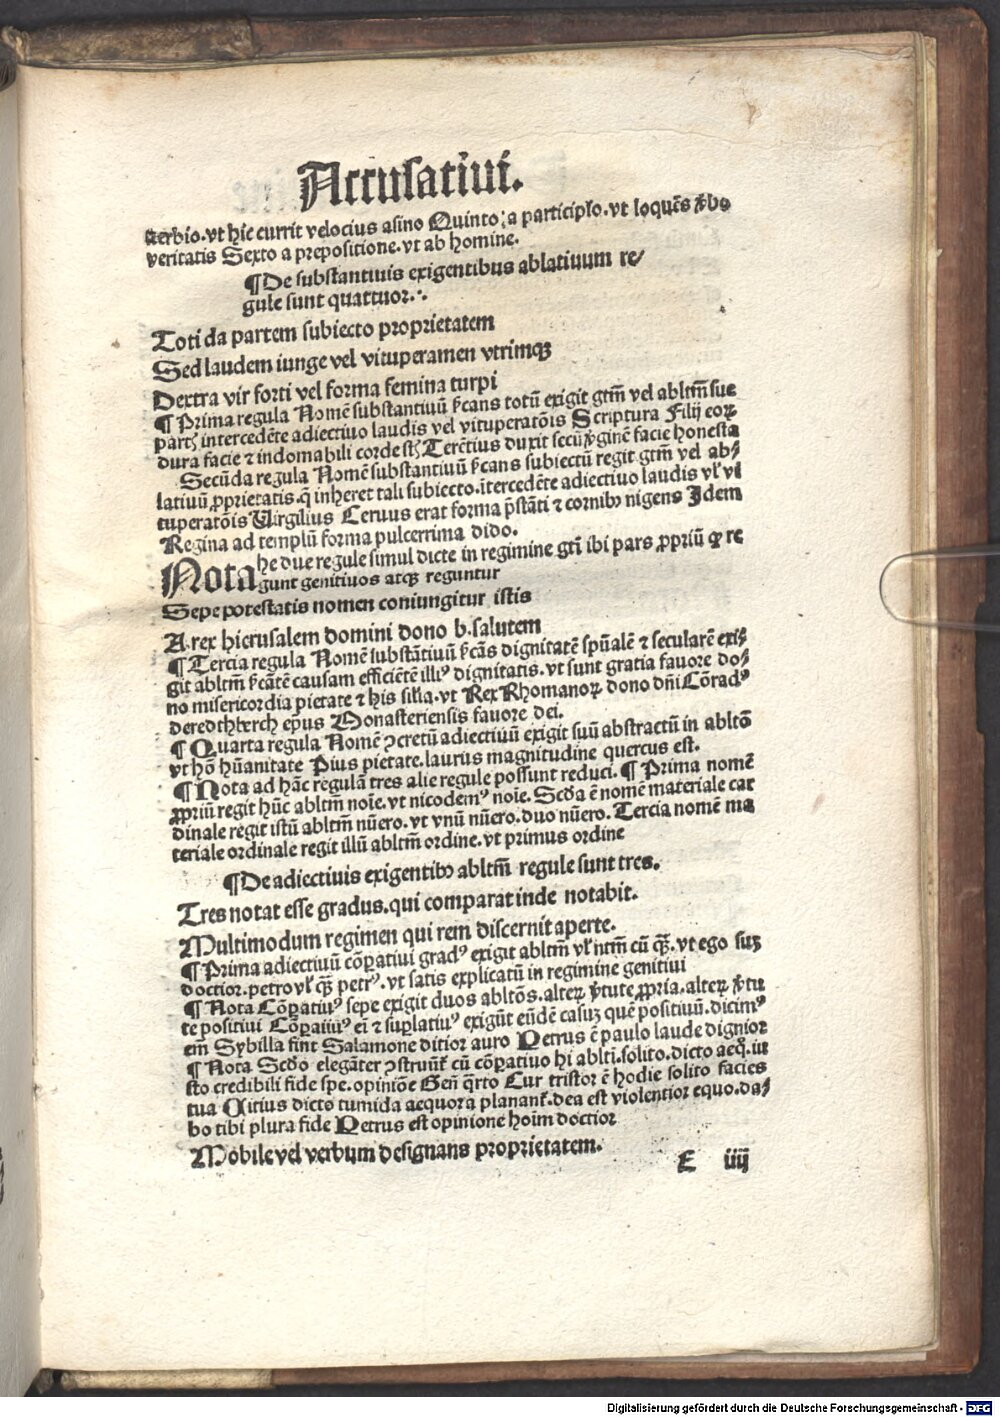 Accusatiui.
uerbio. vt hic currit velocius asino Quinto: a participio. vt loquēs v̄bo
veritatis Sexto a prepositione. vt ab homine.
¶De substantiuis exigentibus ablatiuum re/
gule sunt quattuor.
Toti da partem subiecto proprietatem
Sed laudem iunge vel vituperamen vtrimqꝫ
Dextra vir forti vel forma femina turpi
¶ Prima regula Nomē substantiuū sc̄ans totū exigit gtm̄ vel abltm̄ sue
partꝭ intercedēte adiectiuo laudis vel vituperatōis Scriptura Filij eoꝝ
dura facie ⁊ indomabili corde st̄ Terētius duxit secū v̄ginē facie honesta
Secūda regula Nomē substantiuū sc̄ans subiectū regit gtm̄ vel ab/
latiuū ꝓprietatis. q̄ inheret tali subiecto. ītercedēte adiectiuo laudis vl̕ vi
tuperatōis Virgilius Ceruus erat forma p̄stāti ⁊ cornibꝰ nigens Idem
Regina ad templū forma pulcerrima dido.
Nota he due regule simul dicte in regimine gti̅ ibi pars ꝓpriū qꝫ re
gunt genitiuos atqꝫ reguntur
Sepe potestatis nomen coniungitur istis
A. rex hierusalem domini dono b. salutem
¶ Tercia regula Nomē substātiuū sc̄ās dignitatē sp̄ualē ⁊ secularē exi/
git abltm̄ sc̄atē causam efficiētē illiꝰ dignitatis. vt sunt gratia fauore do/
no misericordia pietate ⁊ his silia. vt Rex Rhomanoꝝ dono dn̄i Cōradꝰ
de redthberch ep̄us Monasteriensis fauore dei.
¶ Quarta regula Nomē ꝯcretū adiectiuū exigit suū abstractū in abltō
vt hō hūanitate Pius pietate. laurus magnitudine quercus est.
¶ Nota ad hāc regulā tres alie regule possunt reduci. ¶ Prima nomē
ꝓpriū regit hūc abltm̄ noīe. vt nicodemꝰ noīe. Scd̄a ē nomē materiale car
dinale regit istū abltm̄ nūero. vt vnū nūero. duo nūero. Tercia nomē ma
teriale ordinale regit illū abltm̄ ordine. vt primus ordine
¶De adiectiuis exigentibꝰ abltm̄ regule sunt tres.
Tres notat esse gradus. qui comparat inde notabit.
Multimodum regimen qui rem discernit aperte.
¶ Prima adiectiuū cōꝑatiui gradꝰ exigit abltm̄ vl̕ ntm̄ cū qꝫ. vt ego suꝫ
doctior. petro vl̕ qꝫ petrꝰ. vt satis explicatū in regimine genitiui
¶ Nota Cōꝑatiuꝰ sepe exigit duos abltōs. alteꝝ v̄tute ꝓpria. alteꝝ v̄tu
te positiui Cōꝑatiuꝰ ei̅ ⁊ suꝑlatiuꝰ exigūt eūdē casuꝫ quē positiuū. dicimꝰ
em̄ Sybilla fint Salamone ditior auro Petrus ē paulo laude dignior
¶ Nota Scd̄o elegāter ꝯstruūt̕ cū cōꝑatiuo hi ablti̅. solito. dicto aeq̄. iu
sto credibili fide spe. opiniōe Gen̄ q̄rto Cur tristor ē hodie solito facies
tua Citius dicto tumida aequora planant̕. dea est violentior equo. da/
bo tibi plura fide Petrus est opinione hoīm doctior
Mobile vel verbum designans proprietatem.
E iiij
Digitalisierung gefördert durch die Deutsche Forschungsgemeinschaft - DFG